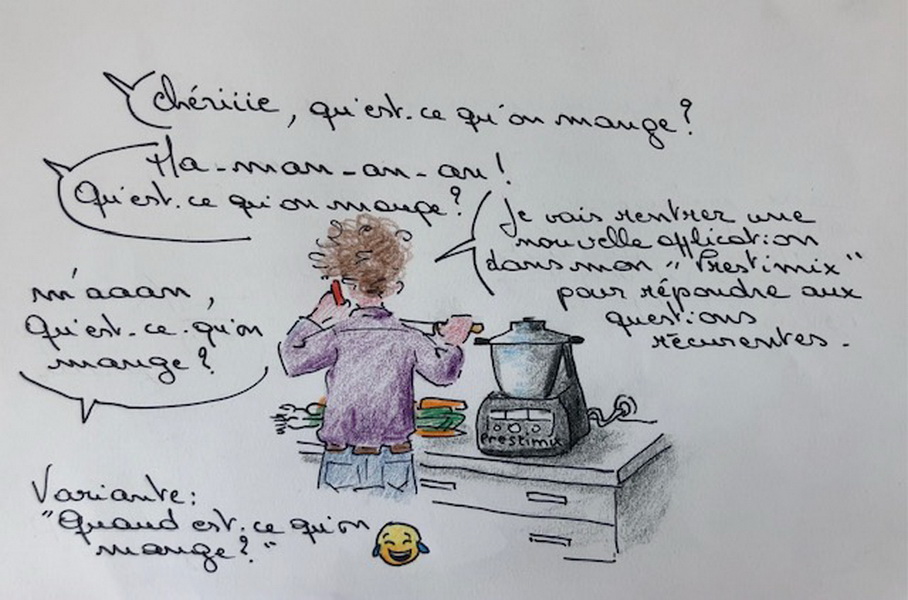 Chériiie, qu'est-ce qu'on mange?
Ma-man-an-an!
Qu'est-ce qu'on mange?
Je vais rentrer une
nouvelle application
dans mon "Prestimix"
pour répondre aux
questions
récurentes.
m'aaan,
Qu'est-ce-qu'on
mange?
Prestimix
Variante:
"Quand est-ce qu'on
mange?"